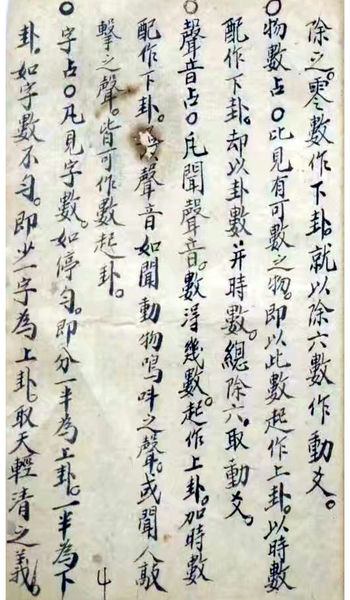 除之。零數作下卦。就以除六數作動爻。
○物數占○比見有可數之物。即以此數起作上卦。以時數
配作下卦。却以卦數并時數。總除六。取動爻。
○聲音占○凡聞聲音。數得幾數。起作上卦。加時數
配作下卦。聲音如聞動物鳴叫之聲。或聞人敲
擊之聲。皆可作數起卦。
○字占○凡見字數。如停勻。即分一半為上卦。一半為下
卦。如字數不勻。即少一字為上卦。取天輕清之義。